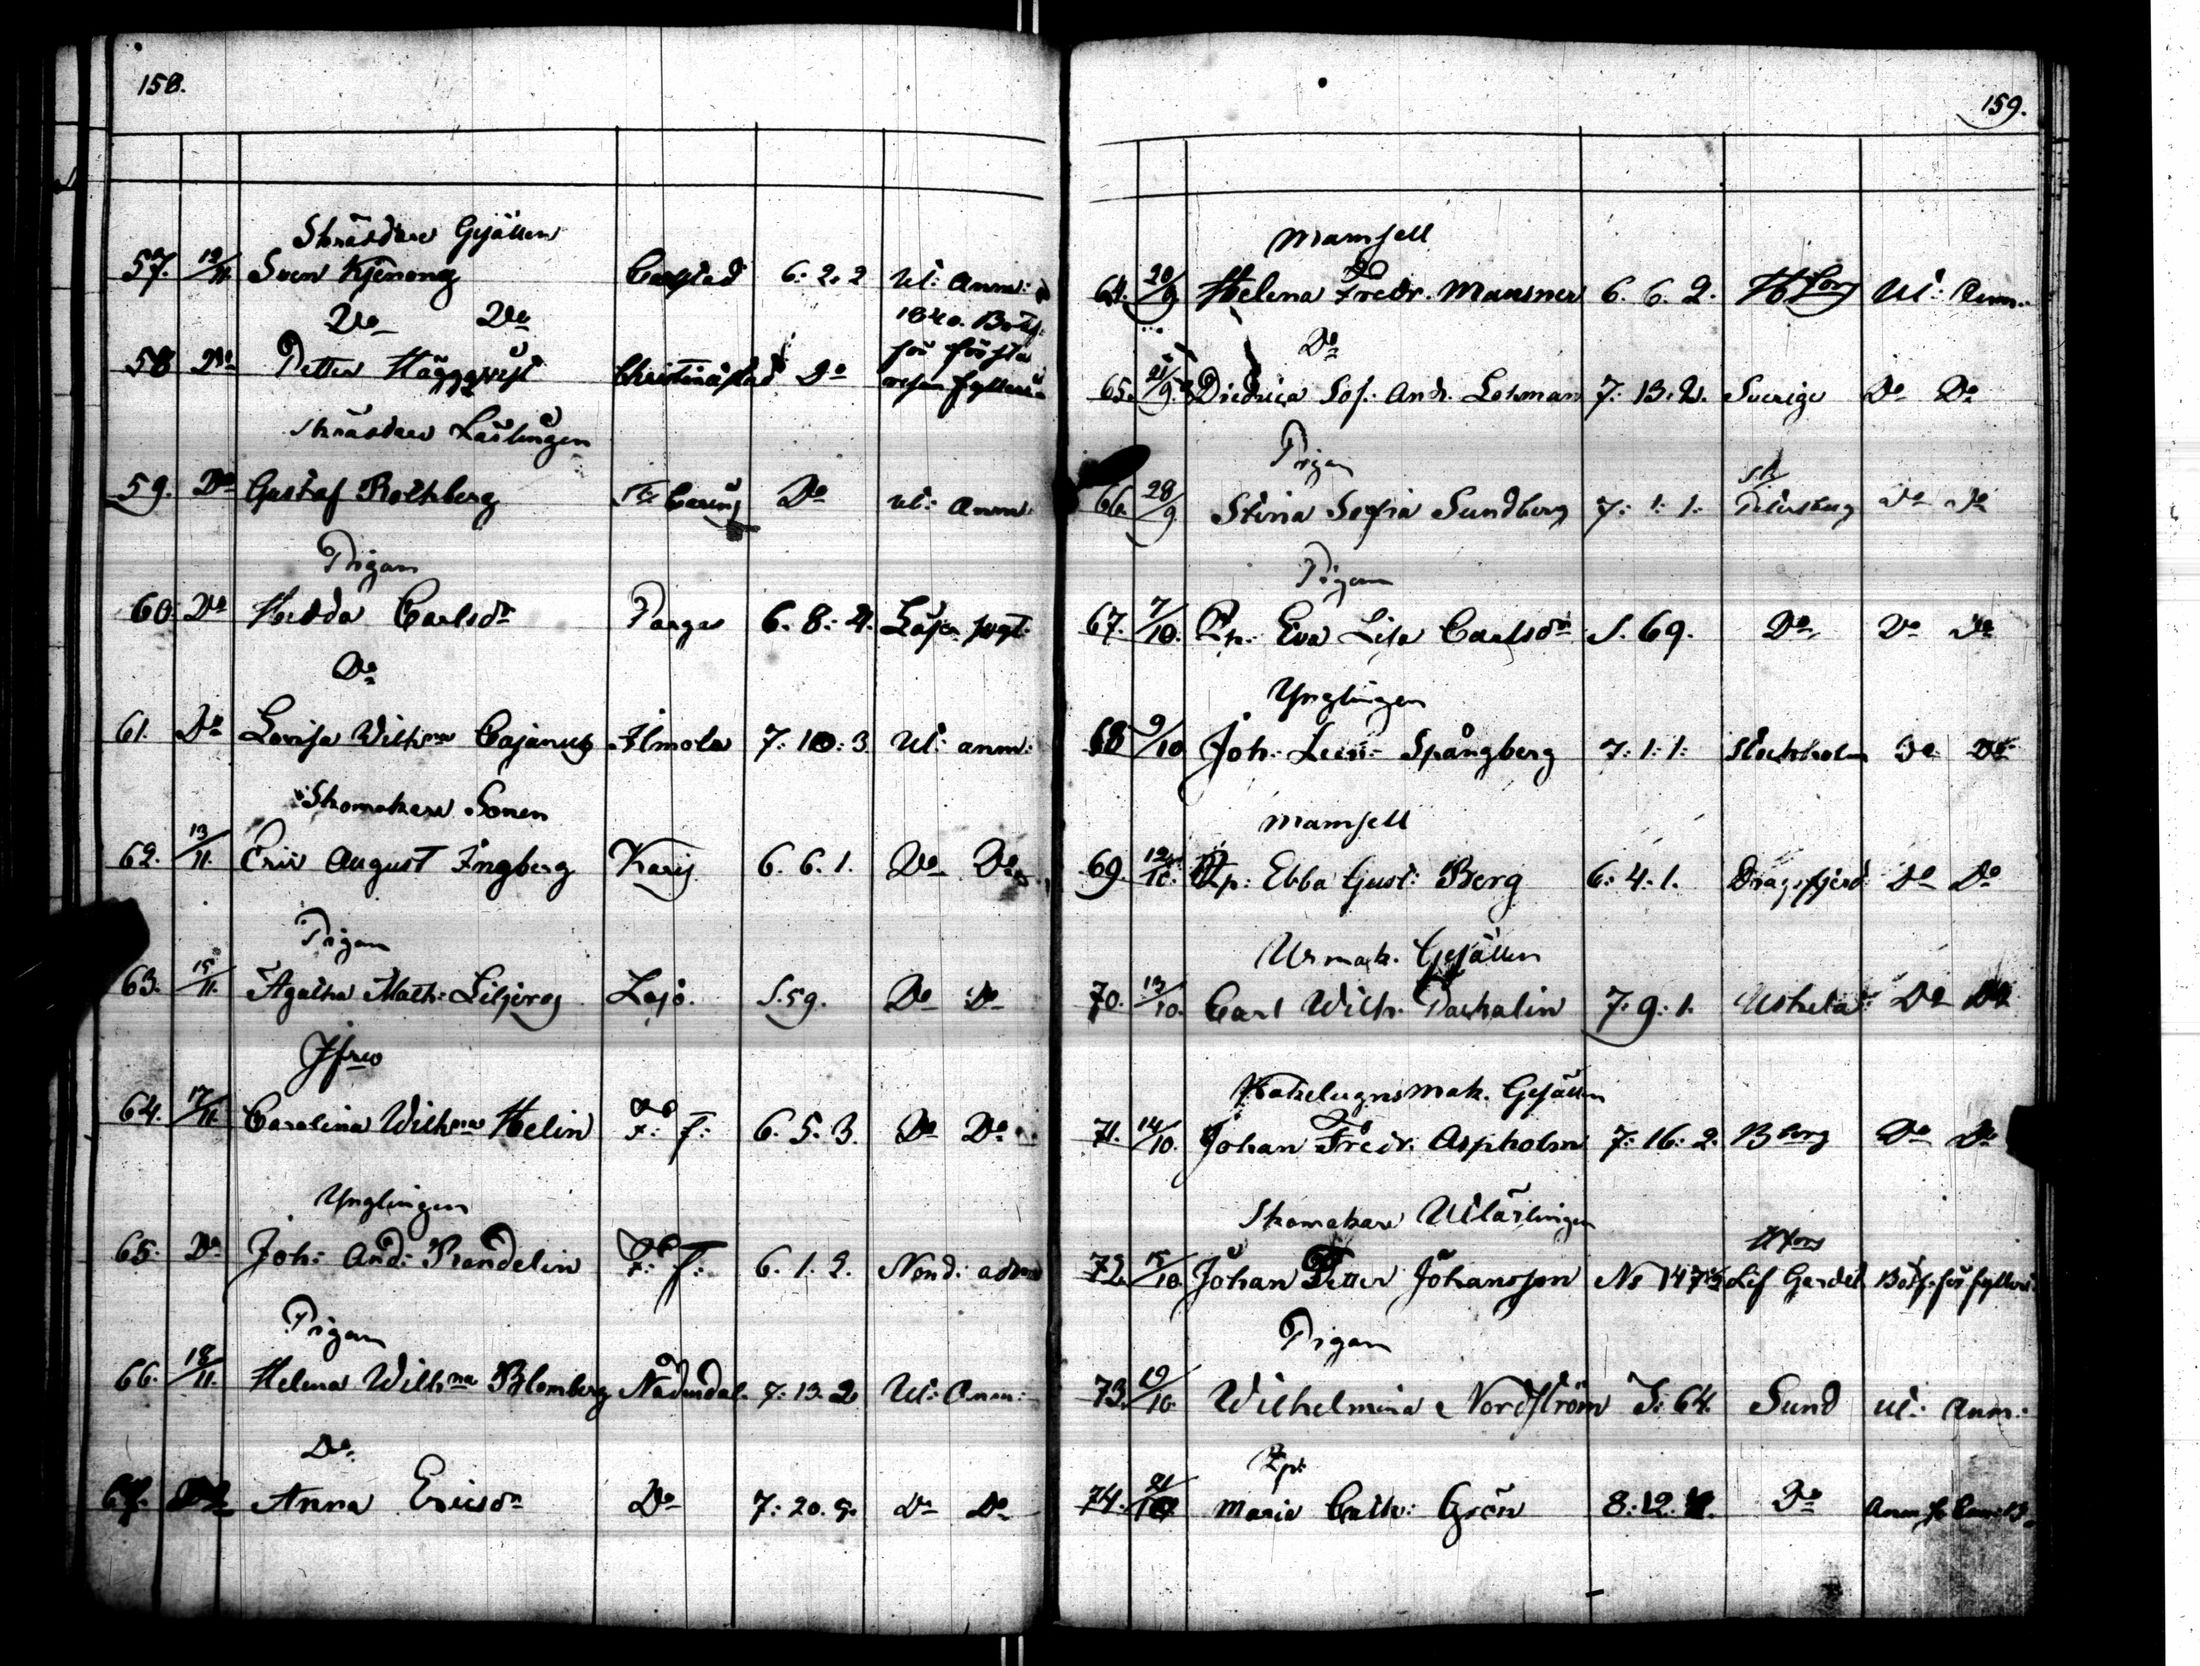 158.
Skräddare Gesällen
57. 12/11 Sven Kjenong Carlstad 6. 2. 2 Ut: Anm:
Do Do 1840. Botf:
för första
58 Do Petter Häggqvist Christinæstad Do resan fylleri
Skräddare Lärlingen
59. Do Gustaf Rothberg Do ut: Anm:
Pigan
60. Do Hedda Carlsdr Pargas 6. 8: 4.
Do
61. Do Lovisa Wilhna Cajanus Ilmola 7: 10: 3 Ut: anm:
Skomakare Sonen
62. 13/11. Eric August Ingberg Karis 6. 6. 1. Do Do
Pigan
63. 15/11. Agatha Math: Lojo. S. 59. Do Do
Jfrw
64. 17/11. Carolina Wilhna Helin F: f: 6. 5. 3. Do Do
Ynglingen
65. Do Joh: And: Randelin F: f: 6. 1. 2.
Pigan
66. 18/11. Helena Wilhna Blomberg Nådendal. 7: 13. 2 Ut: Anm:
Do
67. Do Anna Ericsdr Do 7: 20. Do Do
159.
Mamsell
64. 20/9 Helena Fredr. Mausner 6. 6. 2. Hfors Ut: Anm:
Do
65. 21/9. Diedrica Sof. And. Lohman 7: 13. 2. Sverige Do Do
Pigan
St
66. 28/9 Stina Sofia Sundberg 7: 1: 1: Petersburg Do Do
Pigan
67. 7/10. Eva Lisa Carlsdr S. 69. Do Do Do
Ynglingen
68 9/10 Joh: Leon: Spångberg 7: 1: 1: Stockholm Do Do
Mamsell
69. 12/10. Ebba Gust: Berg 6: 4: 1. Dragsfjerd Do Do
Urmak. Gesällen
70. 13/10. Carl Wilh. Pachalin 7. 9: 1. Uskela Do Do
Kakelugnsmak. Gesällen
71. 14/10. Johan Fredr: Aspholm 7: 16: 2. Bborg Do Do
Skomakare Utlärlingen
Hfors
72. 15/10. Johan Petter Johansson Lif Gardet Botf: för fylleri
Pigan
73. 19/10. Wilhelmina Nordström S: 64. Sund ut: Anm:
74. 21/10 Maria Cath: Grön 8: 12. Do